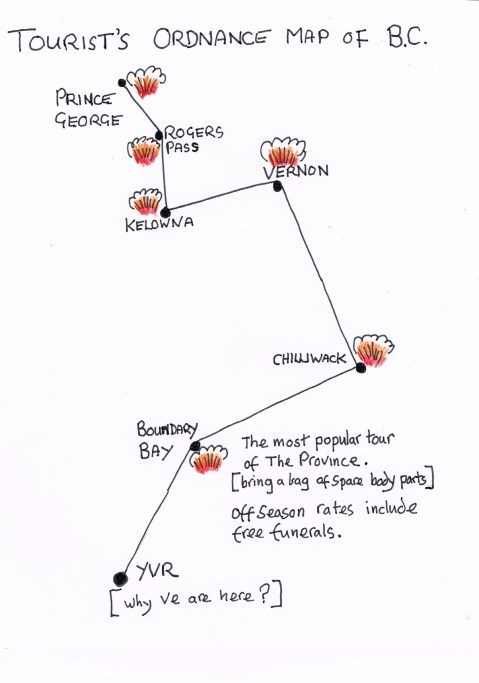 TOURIST'S ORDNANCE MAP OF B.C.
PRINCE
GEORGE
ROGERS
PASS
VERNON
KELOWNA
CHILLIWACK
BOUNDARY
BAY
The most popular tour
of The Province.
[bring a bag of space body parts]
Off Season rates include
free funerals.
YVR
[why ve are here?]